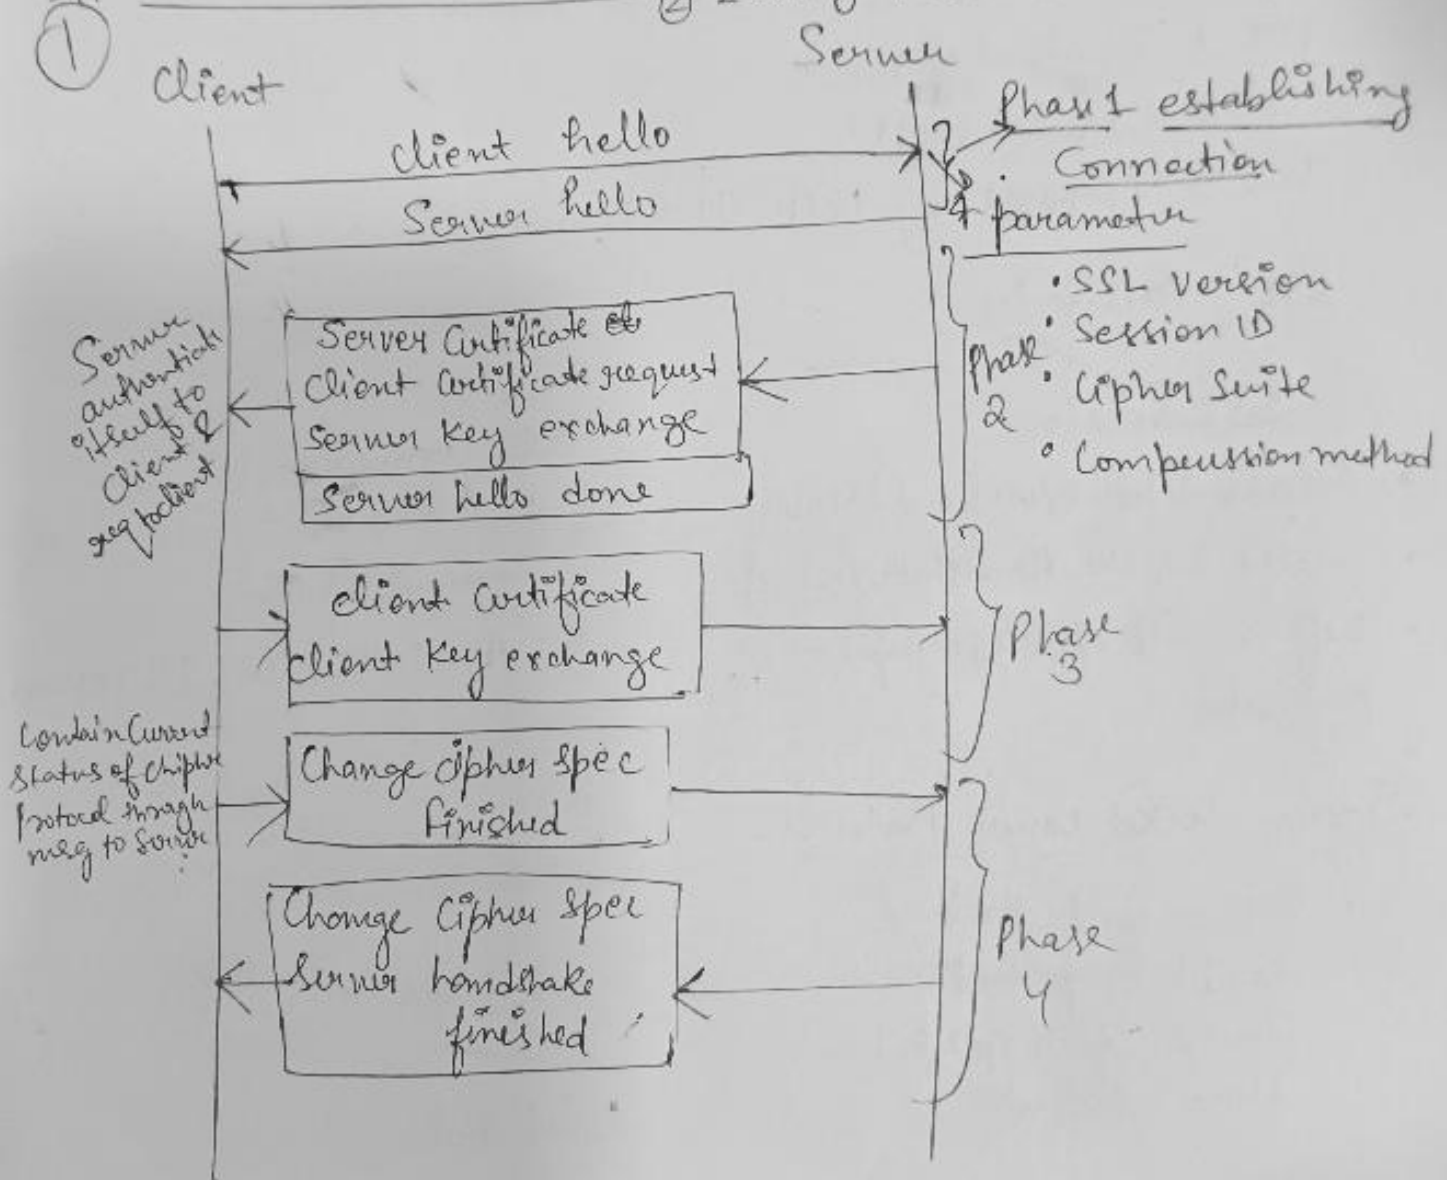 ①
Client
Server
Client hello
Server hello
Phase 1 establishing
Connection
parameter
• SSL version
• Session ID
• Cipher Suite
• Compression method
Server
authenticate
itself to
Client &
req to client
Server Certificate &
Client Certificate request
Server Key exchange
Server hello done
Phase
2
Client Certificate
Client Key exchange
Phase
3
Contain Current
Status of Chipher
Protocol through
msg to Server
Change cipher spec
finished
Change Cipher spec
Server handshake
finished
Phase
4